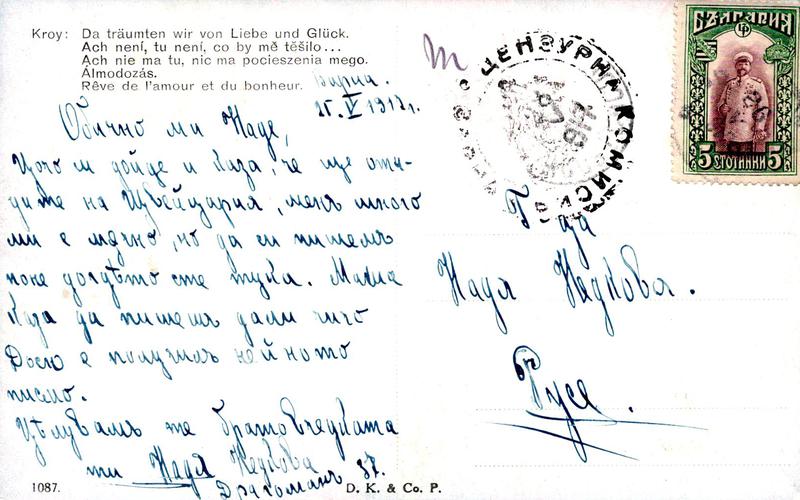 Kroy: Da träumten wir von Liebe und Glück.
Ach není, tu není, co by mě těšilo...
Ach nie ma tu, nic ma pocieszenia mego.
Álmodozás.
Rêve de l'amour et du bonheur.
Варна.
Обично ми Наде,
дойде и каза, че ще оти-
дите на Швейцария, менъ много
ми е мъчно, но да си пишемъ
поне догдѣто сте тука. Мама
каза да пишеш дали чичо
Досю е получилъ нейното
писмо.
Цѣлувамъ те братовчедката
ти Надя Недкова
Драгоманъ 37.
ЦЕНЗУРНА КОМИСИЯ
БЪЛГАРИЯ
5 СТОТИНКИ 5
Г-ца
Надя Недкова.
Русе.
1087.
D. K. & Co. P.